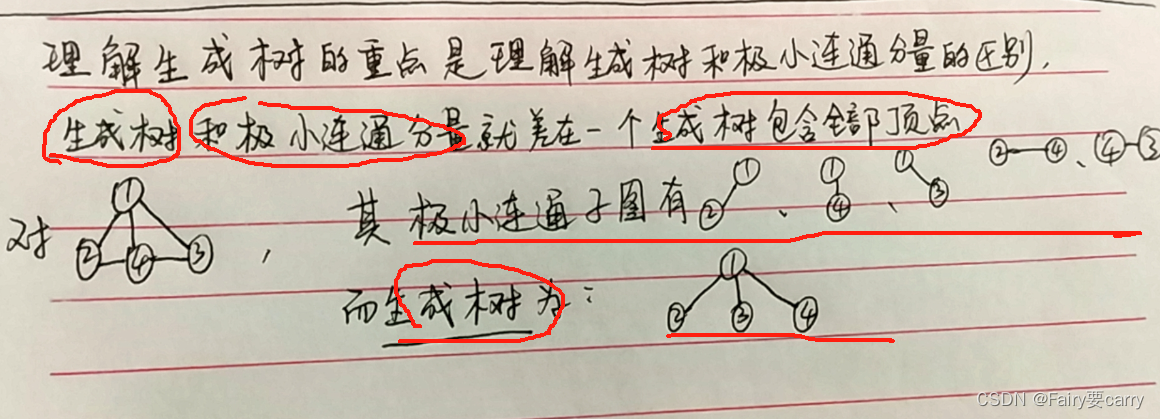 理解生成树的重点是理解生成树和极小连通分量的区别.
生成树和极小连通分量就差在一个生成树包含全部顶点
② ④、④ ③
对 ① ② ④ ③ , 其极小连通子图有 ① ② 、 ① ④ 、 ① ③
而生成树为: ① ② ③ ④
CSDN @Fairy要carry